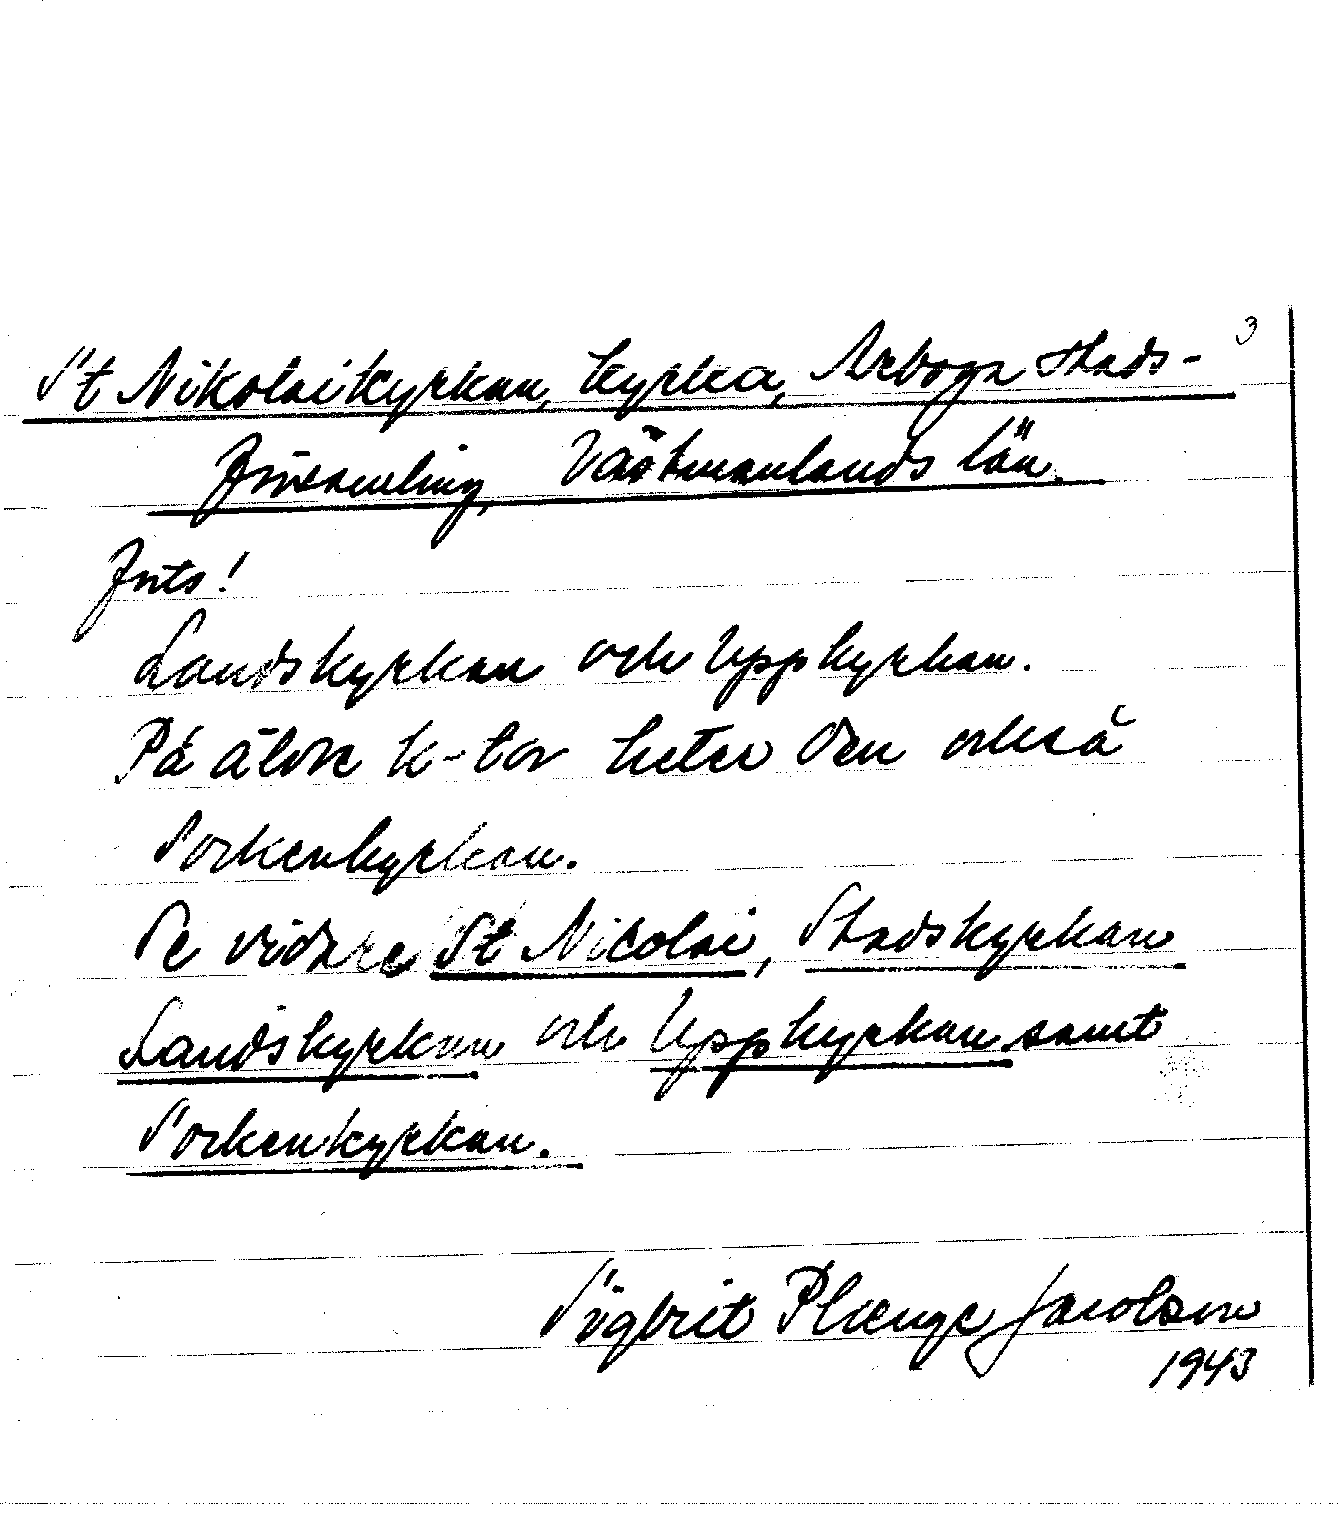 3
St Nikolaikyrkan, kyrka, Arboga stads-
församling, Västmanlands län.
Forts!
Landskyrkan och Uppkyrkan.
På äldre k-tor heter den också
Sockenkyrkan.
Se vidare St Nicolai, Stadskyrkan
Landskyrkan och Uppkyrkan samt
Sockenkyrkan.
Sigbrit Plænge Jacobson
1943